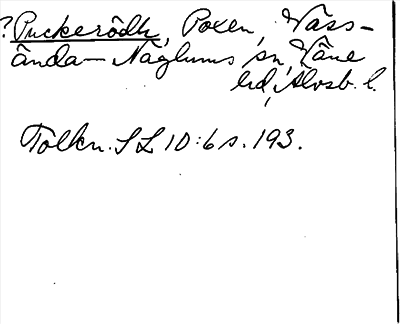 ?Puckerödh, Poxen, Väss-
ända-Naglums sn, Väne
hd, Älvsb. l.
Tolkn. SL 10:6 s. 193.